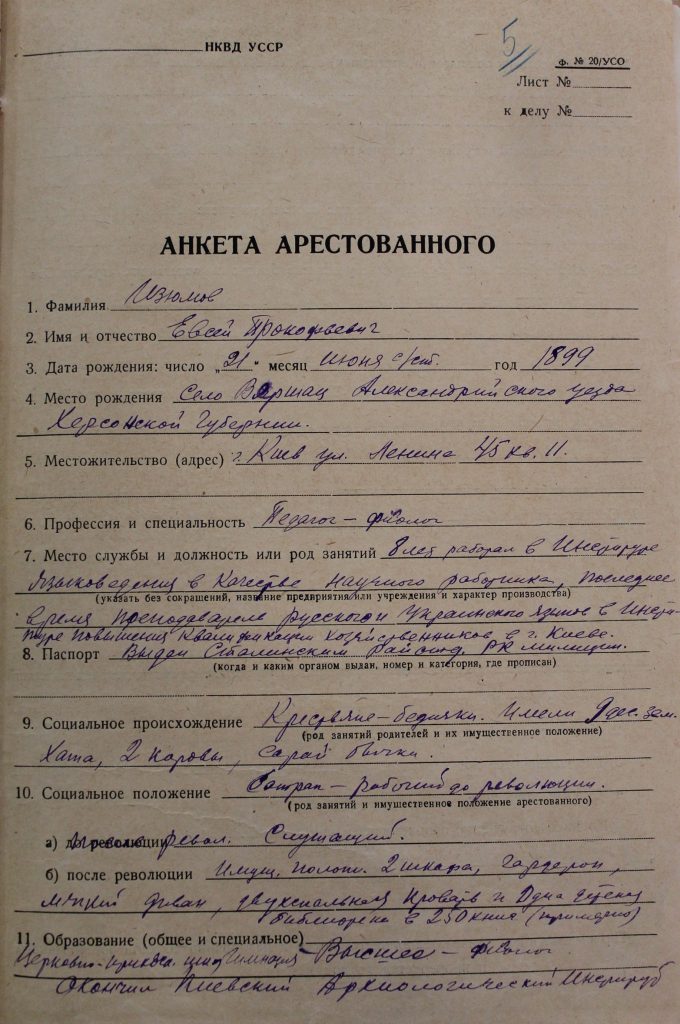 НКВД УССР
5
ф. № 20/УСО
Лист №
к делу №
АНКЕТА АРЕСТОВАННОГО
1. Фамилия Изюмов
2. Имя и отчество Евсей Прокофьевич
3. Дата рождения: число „21" месяц июня с/ст. год 1899
4. Место рождения Село Варшац Александрийского уезда
Херсонской Губернии.
5. Местожительство (адрес) г. Киев ул. Ленина 45 кв. 11.
6. Профессия и специальность Педагог – филолог
7. Место службы и должность или род занятий 8 лет работал в Институте
языковедения в качестве научного работника, последнее
(указать без сокращений, название предприятия или учреждения и характер производства)
время преподаватель русского и украинского языков в Инсти-
туте повышения квалификации хозяйственников в г. Киеве.
8. Паспорт Выдан Сталинским РК милиции.
(когда и каким органом выдан, номер и категория, где прописан)
9. Социальное происхождение Крестьяне–бедняки. Имели 9 дес. зем.
(род занятий родителей и их имущественное положение)
Хата, 2 коровы, сарай бычки.
10. Социальное положение батрак – рабочий до революции.
(род занятий и имущественное положение арестованного)
а) до революции После револ. Служащий.
б) после революции Имущ. полож. 2 шкафа, гардероп,
мягкий диван, двухспальная кровать и одна детская
библиотека в 250 книг (примерно)
11. Образование (общее и специальное)
Церковно-приходс. гимназия Высшее – филолог
Окончил Киевский Археологический Институт